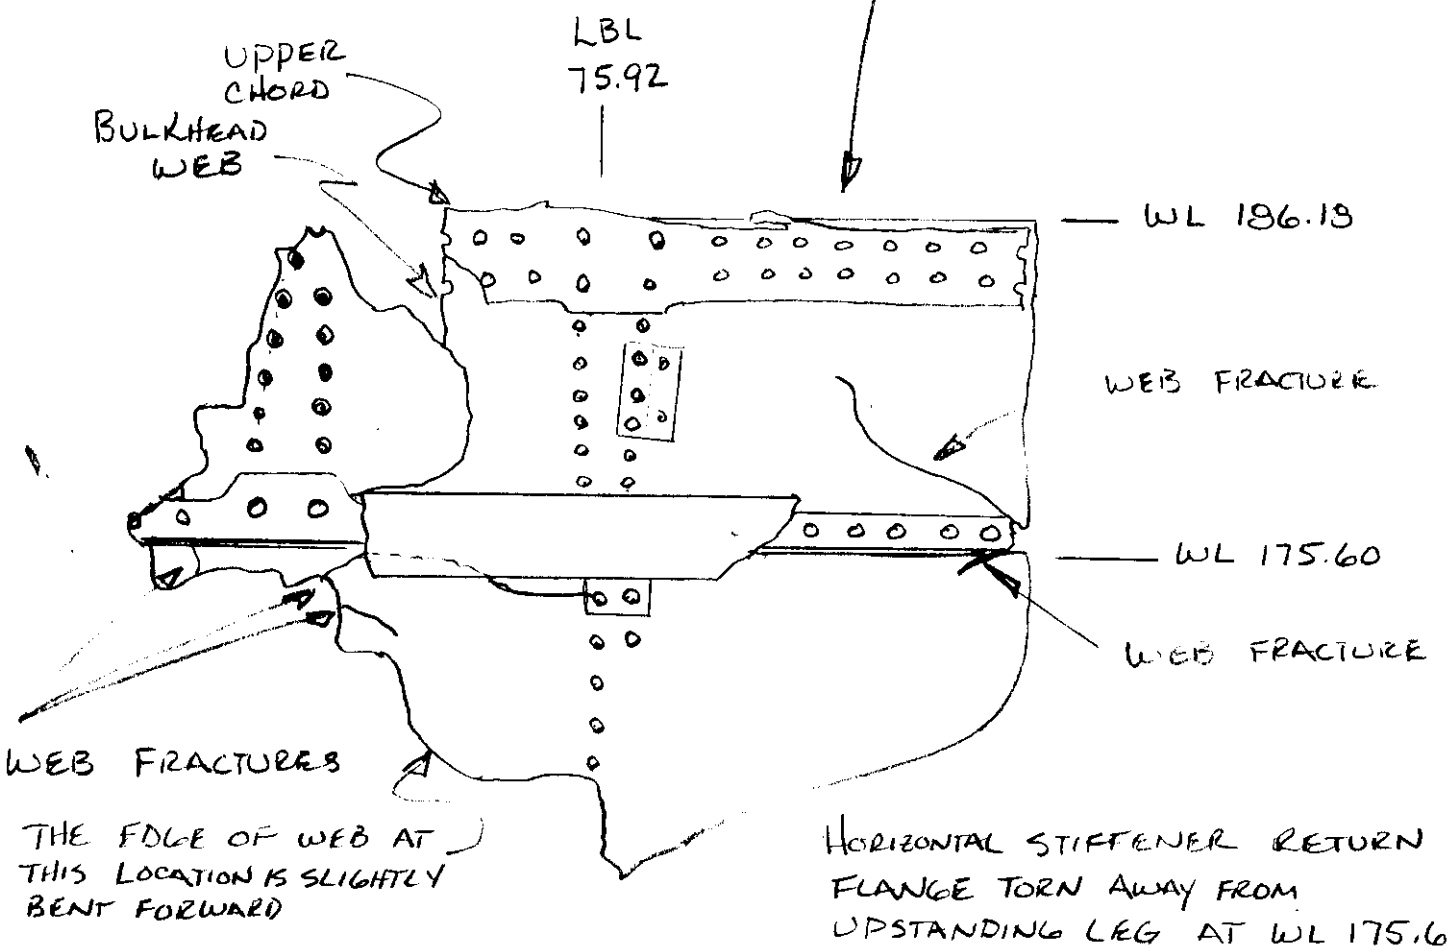 LBL
75.92
UPPER
CHORD
BULKHEAD
WEB
WL 186.18
WEB FRACTURE
WL 175.60
WEB FRACTURE
WEB FRACTURES
THE EDGE OF WEB AT
THIS LOCATION IS SLIGHTLY
BENT FORWARD
HORIZONTAL STIFFENER RETURN
FLANGE TORN AWAY FROM
UPSTANDING LEG AT WL 175.6